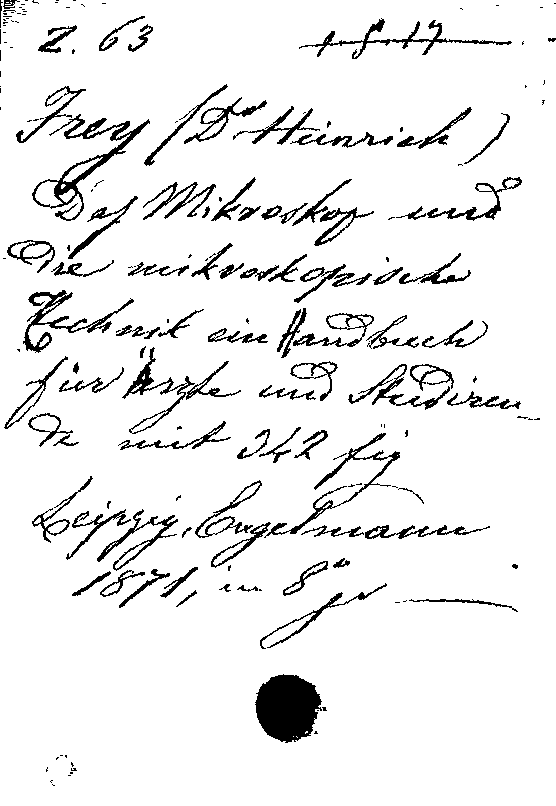 Z. 63 1.8.17
Frey (Dr Heinrich)
Das Mikroskop und
die mikroskopische
Technik ein Handbuch
für Ärzte und Studiren-
de mit 342 fig
Leipzig, Engelmann
1871, in 8° gr